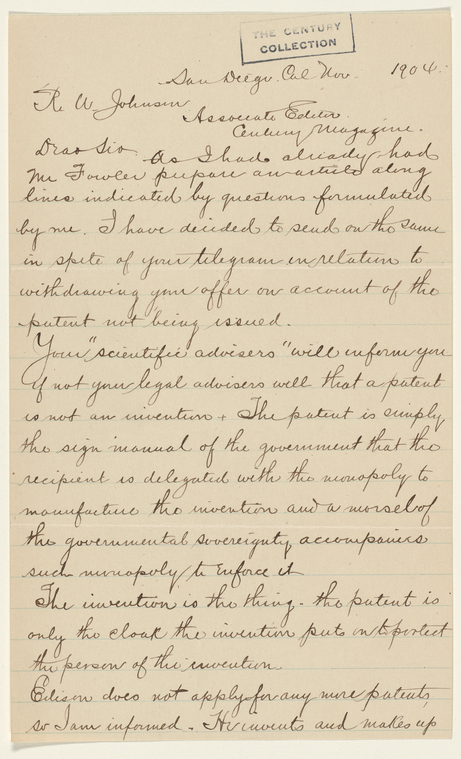 THE CENTURY
COLLECTION
San Diego. Cal Nov. 1904.
R. W. Johnson
Associate Editor
Century Magazine.
Dear Sir. As I had already had
Mr Fowler prepare an article along
lines indicated by questions formulated
by me. I have decided to send on the same
in spite of your telegram in relation to
withdrawing your offer on account of the
patent not being issued.
Your "scientific advisers" will inform you
if not your legal advisers will that a patent
is not an invention + The patent is simply
the sign manual of the government that the
recipient is delegated with the monopoly to
manufacture the invention and a morsel of
the governmental sovereignty accompanies
such monopoly to enforce it
The invention is the thing - the patent is
only the cloak the invention puts on to protect
the person of the invention.
Edison does not apply for any more patents,
so I am informed. He invents and makes up